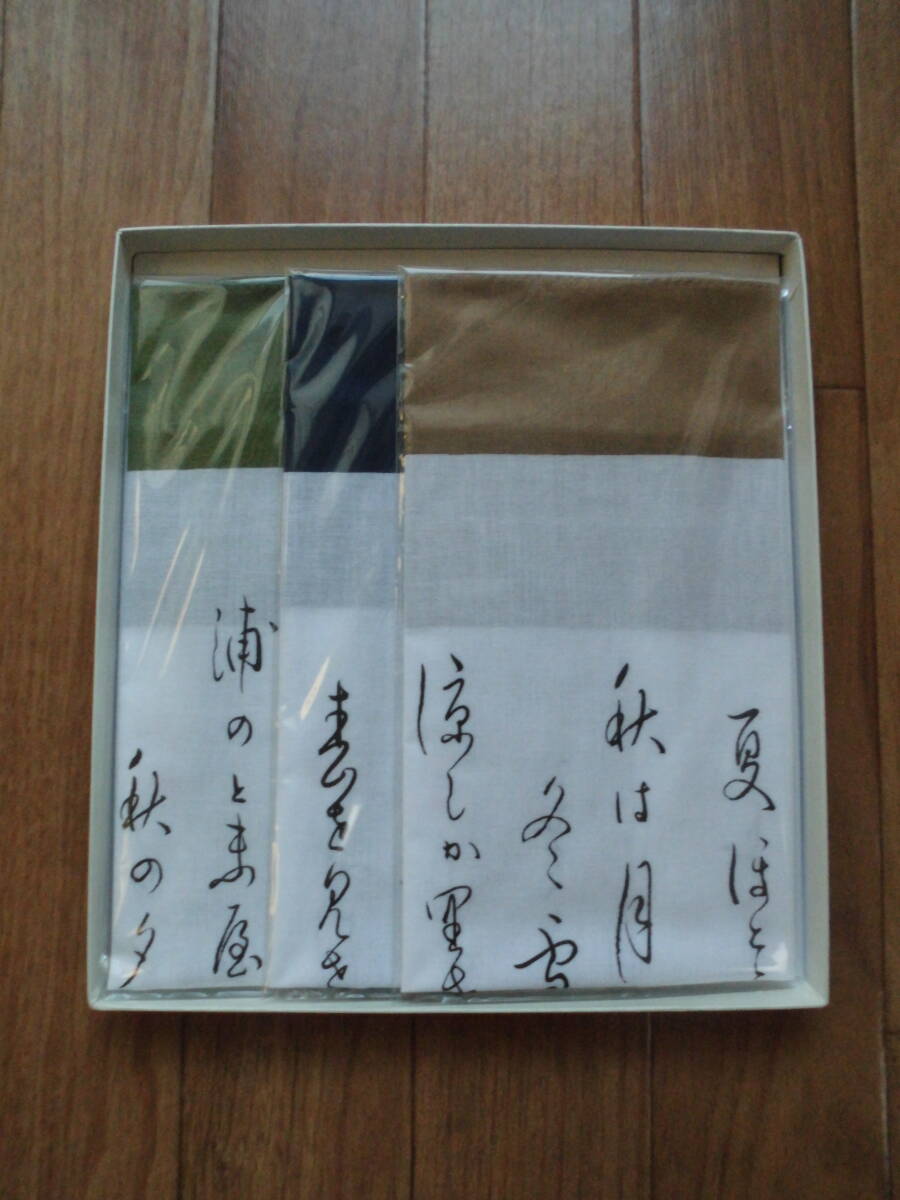 夏ほとゝ
秋は月
冬雪
涼しか里
春を見せ
浦のとま屋
秋の夕